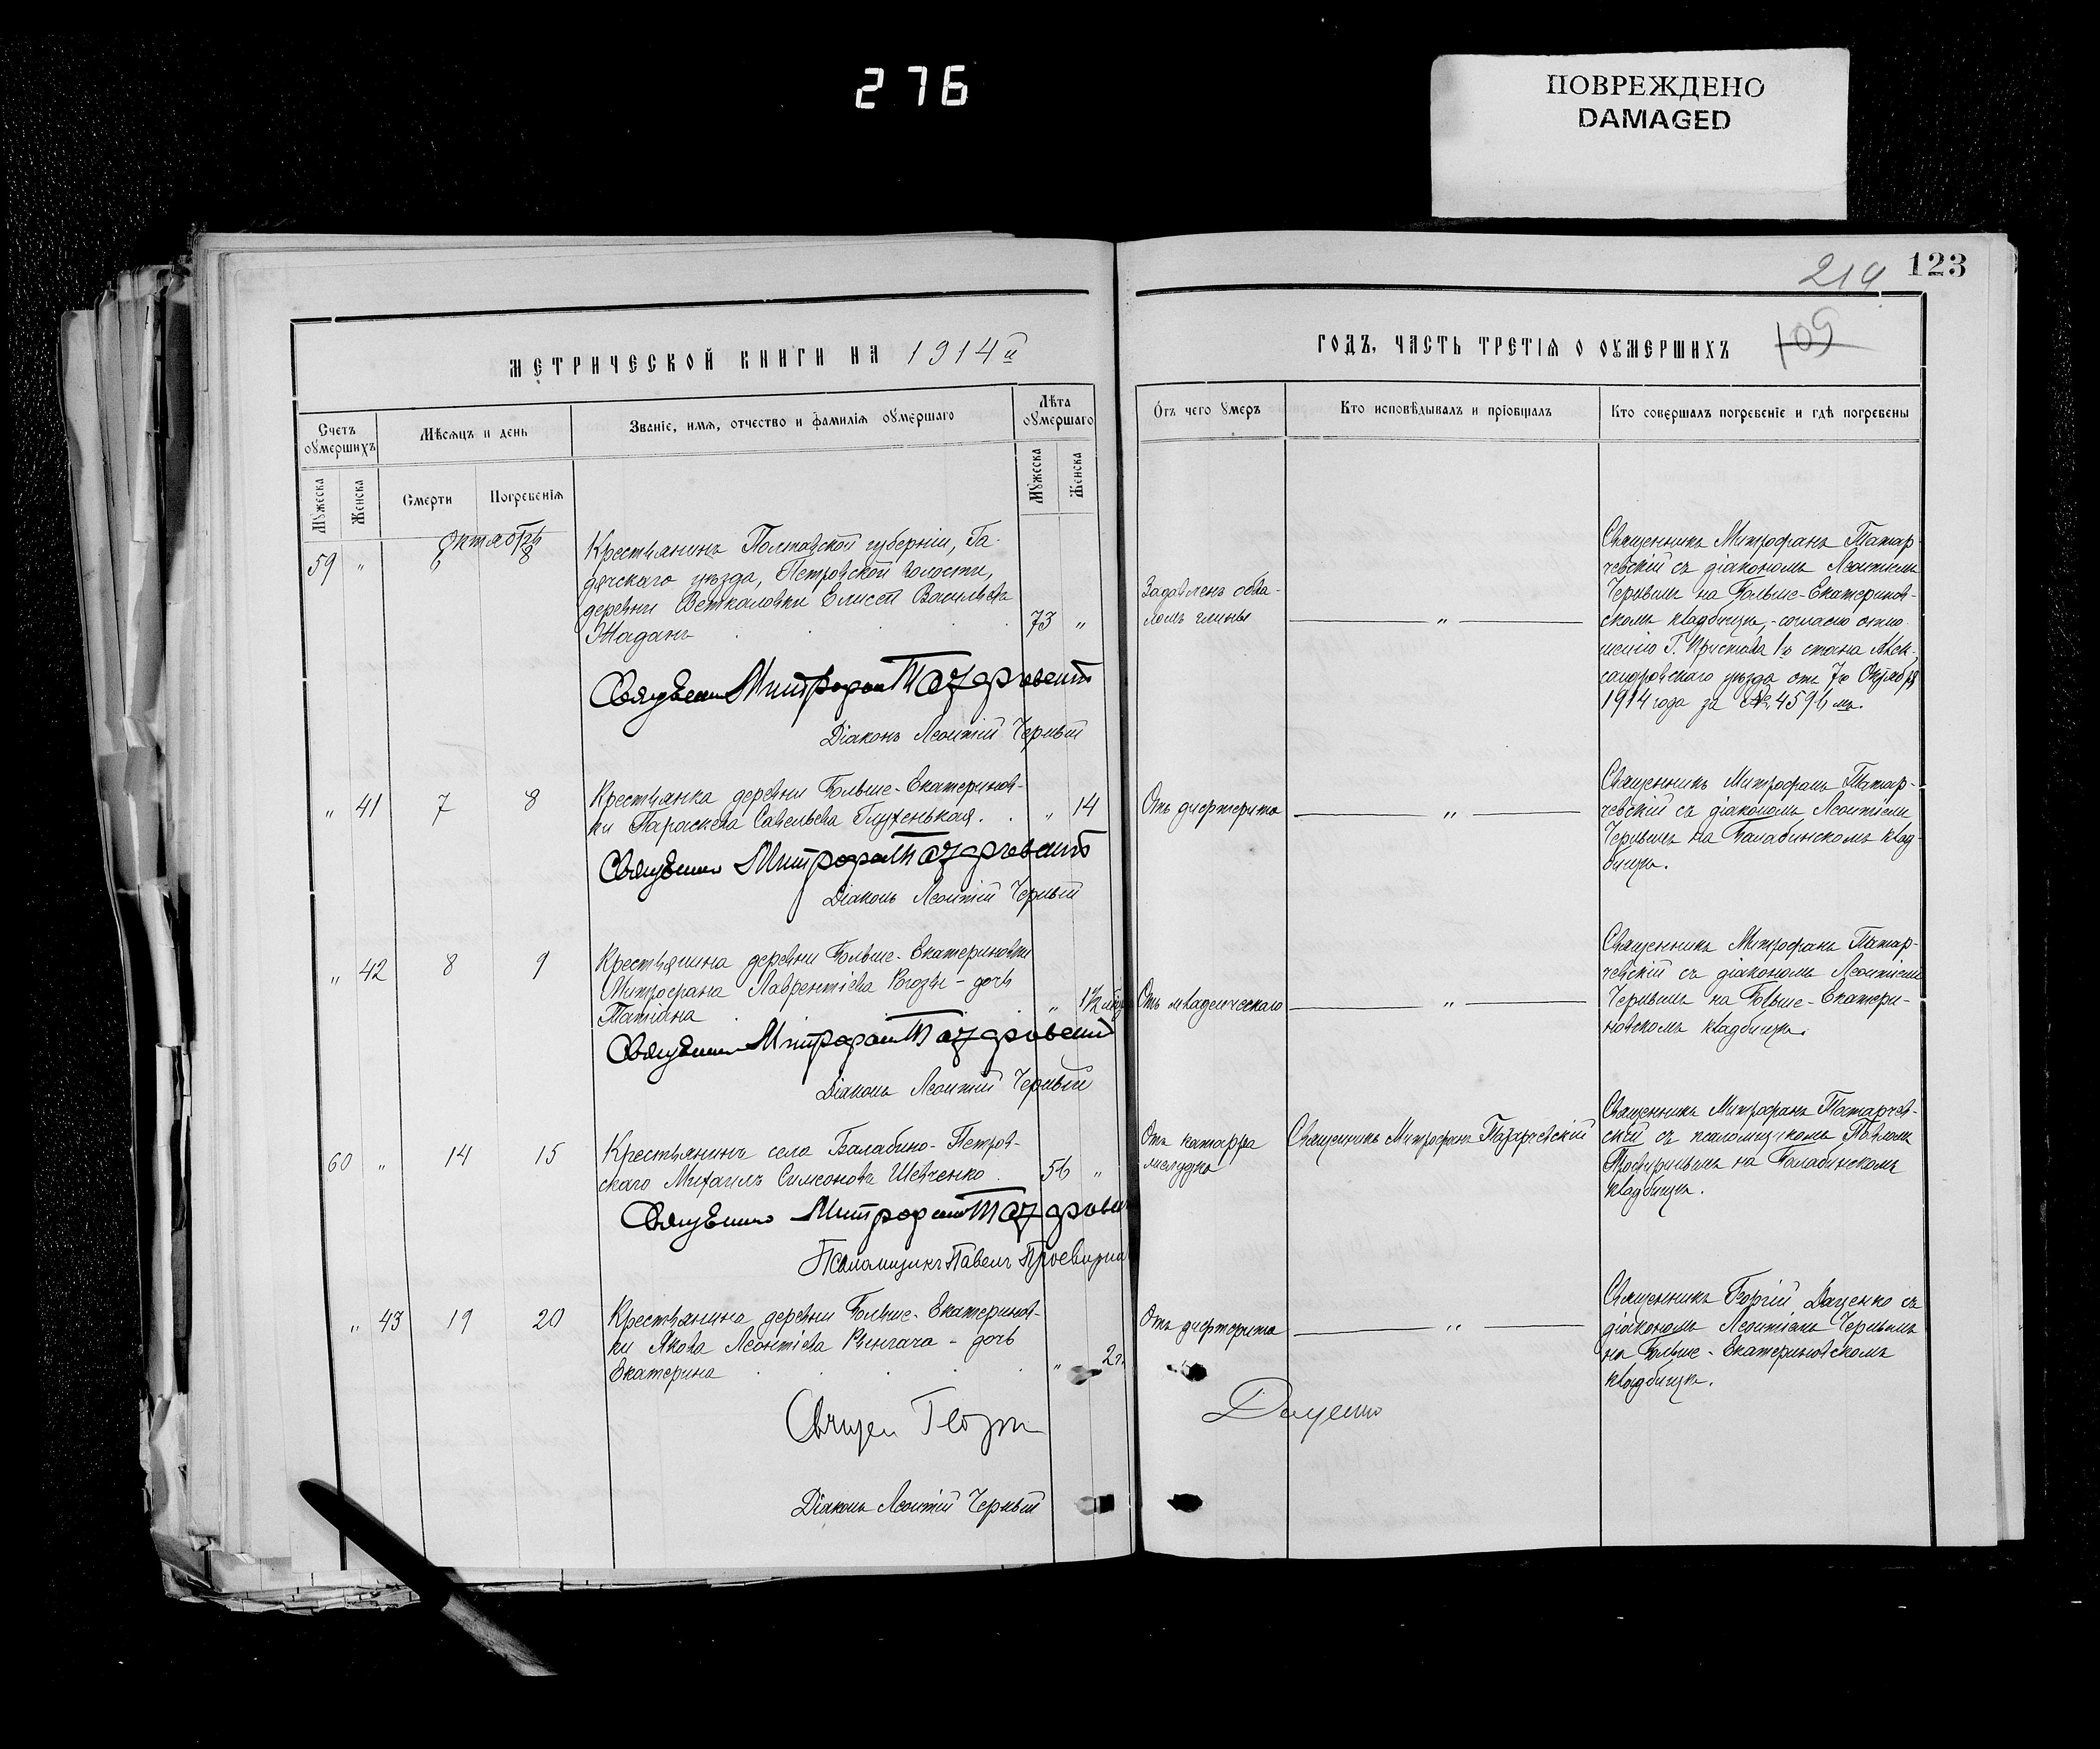 276
ПОВРЕЖДЕНО
DAMAGED
МЕТРИЧЕСКОЙ КНИГИ НА 1914 й
Счетъ оумершихъ
Мѣсяцъ и день
Званіе, имя, отчество и фамилія оумершаго
Лѣта оумершаго
Мужеска
Женска
Смерти
Погребенія
Мужеска
Женска
Октябрь
59 " 6 8
Крестьянинъ Полтавской губерніи, Га-
дячскаго уѣзда, Петровской волости,
деревни Веткаловки Елисей Васильевъ
Жаданъ . . . . 73 "
Священникъ Митрофанъ Татарчевскій
Діаконъ Леонтій Черный
" 41 7 8
Крестьянка деревни Больше-Екатеринов-
ки Параскева Савельева Глухенькая . . " 14
Священникъ Митрофанъ Татарчевскій
Діаконъ Леонтій Черный
" 42 8 9
Крестьянина деревни Больше-Екатериновки
Митрофана Лаврентіева Рогозы - дочь
Татіана . . . " 1½
Священникъ Митрофанъ Татарчевскій
Діаконъ Леонтій Черный
60 " 14 15
Крестьянинъ села Балабино-Петров-
скаго Михаилъ Симеоновъ Шевченко . 56 "
Священникъ Митрофанъ Татарчевскій
Псаломщикъ Павелъ
" 43 19 20
Крестьянина деревни Больше-Екатеринов-
ки Якова Леонтіева - дочь
Екатерина . . . . " 2
Священ Георгій
Діаконъ Леонтій Черный
123
214
109
ГОДЪ, ЧАСТЬ ТРЕТІЯ О ОУМЕРШИХЪ
Отъ чего умеръ
Кто исповѣдывалъ и пріобщалъ
Кто совершалъ погребеніе и гдѣ погребены
Задавленъ обва-
ломъ глины
"
Священникъ Митрофанъ Татар-
чевскій съ діакономъ Леонтіемъ
Чернымъ на Больше-Екатеринов-
скомъ кладбищѣ, - согласно отно-
шенію Г. Пристава 1го стана Алек-
сандровскаго уѣзда отъ 7го Октября
1914 года за № 4596 мъ.
Отъ дифтерита
"
Священникъ Митрофанъ Татар-
чевскій съ діакономъ Леонтіемъ
Чернымъ на Балабинскомъ клад-
бищѣ.
Отъ младенческаго
"
Священникъ Митрофанъ Татар-
чевскій съ діакономъ Леонтіемъ
Чернымъ на Больше-Екатери-
новскомъ кладбищѣ.
Отъ катарра
желудка
Священникъ Митрофанъ Татарчевскій
Священникъ Митрофанъ Татарчев-
скій съ псаломщикомъ Павломъ
на Балабинскомъ
кладбищѣ.
Отъ дифтерита
"
Священникъ Георгій Даценко съ
діакономъ Леонтіемъ Чернымъ
на Больше-Екатериновскомъ
кладбищѣ.
Даценко